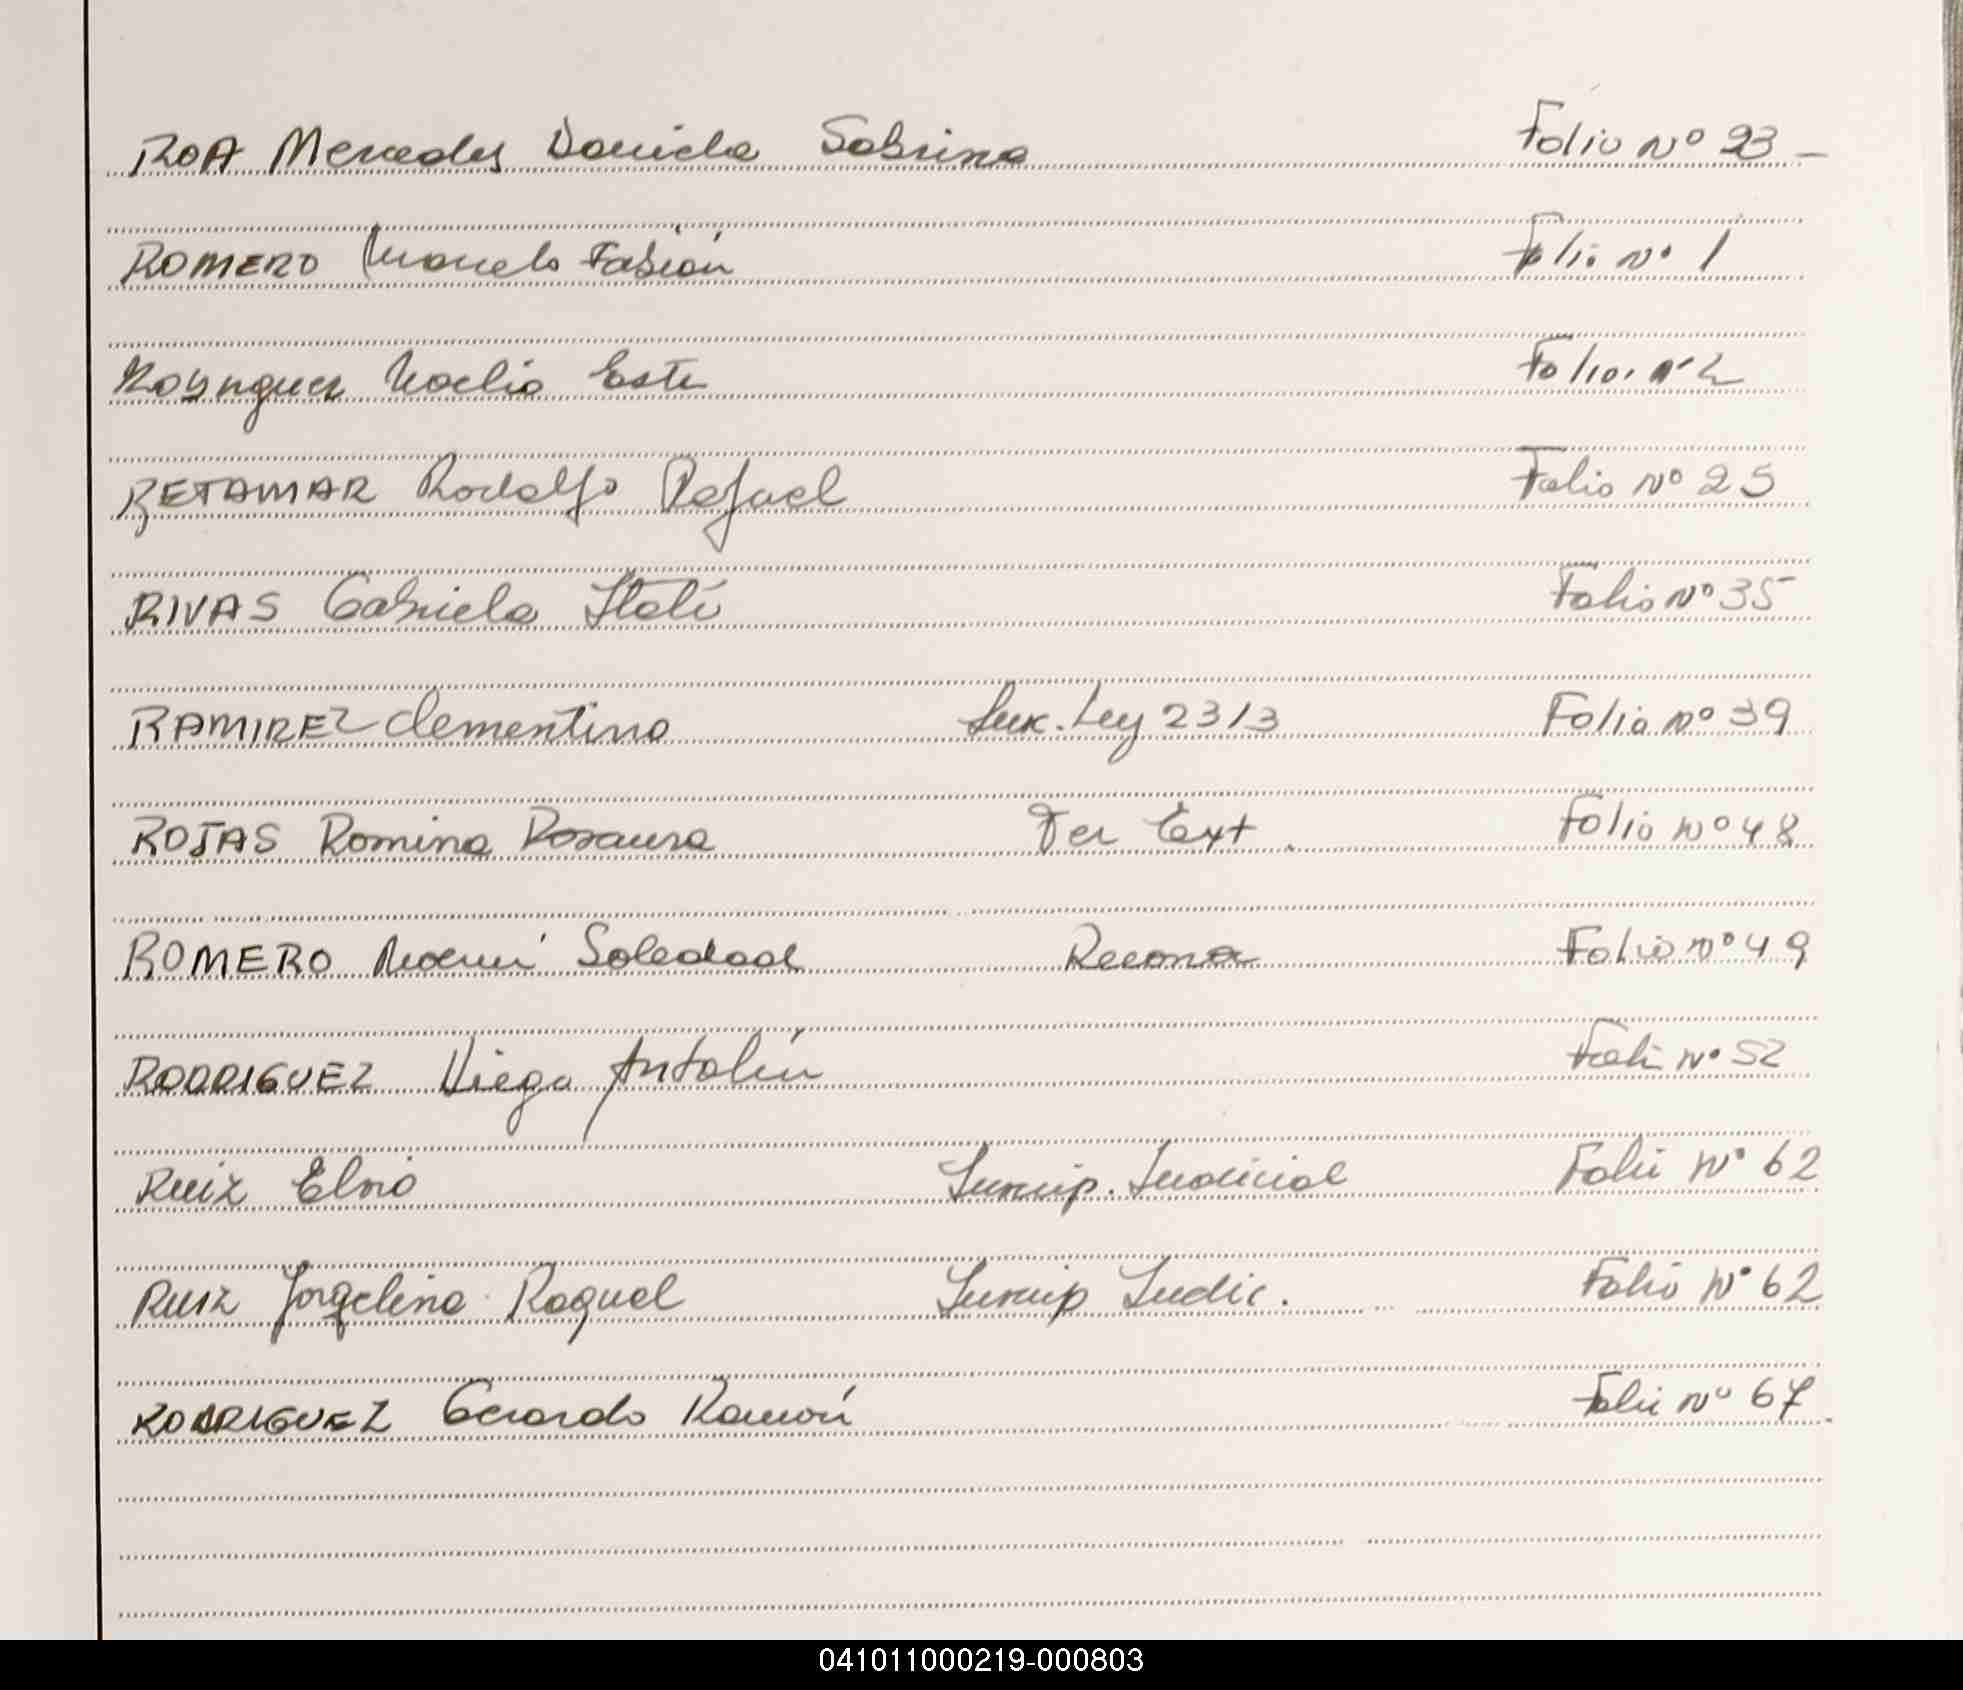 ROA Mercedes Daniela Sabrina Folio Nº 23 -
ROMERO Marcelo Fabián Folio Nº 1
Noelia Este Folio. Nº 2
RETAMAR Rodolfo Rafael Folio Nº 25
RIVAS Gabriela Itatí Folio Nº 35
RAMIREZ Clementina Ley 2313 Folio Nº 39
ROJAS Romina Rosaura Ter Ext. Folio Nº 48
ROMERO Noemí Soledad Folio Nº 49
RODRIGUEZ Diego Antolín Folio Nº 52
Ruiz Elvio Inscrip. Judicial Folio Nº 62
Ruiz Jorgelina Raquel Inscrip Judic. Folio Nº 62
RODRIGUEZ Gerardo Ramón Folio Nº 67.
041011000219-000803